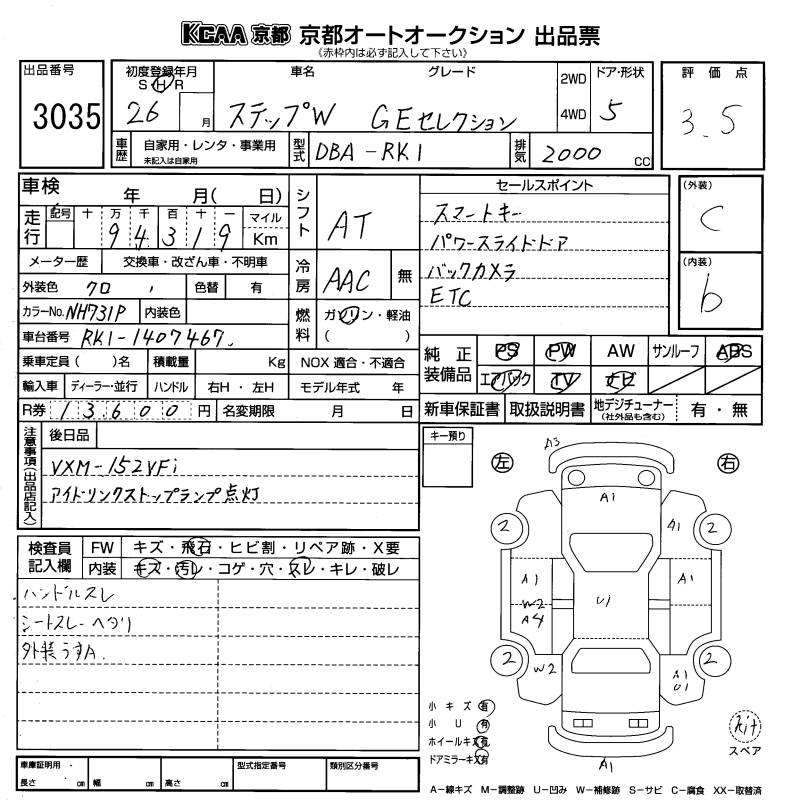 KCAA 京都 京都オートオークション 出品票
《赤枠内は必ず記入して下さい》
出品番号
3035
初度登録年月
S H R
26 月
車名 グレード
ステップW GEセレクション
2WD
4WD
ドア・形状
5
評価点
3.5
車歴
自家用・レンタ・事業用
未記入は自家用
型式
DBA-RK1
排気
2000 CC
車検 年 月( 日)
走行
記号 十 万 千 百 十 一
9 4 3 1 9
マイル
Km
シフト
AT
メーター歴 交換車・改ざん車・不明車
外装色 クロ
色替 有
冷房
AAC 無
カラーNo. NH731P 内装色
燃料
ガソリン・軽油
( )
車台番号 RK1-1407467
乗車定員( )名 積載量 Kg NOX 適合・不適合
輸入車 ディーラー・並行 ハンドル 右H・左H モデル年式 年
R券 13600円 名変期限 月 日
セールスポイント
スマートキー
パワースライドドア
バックカメラ
ETC
(外装)
C
(内装)
b
純正装備品
PS PW AW サンルーフ ABS
エアバック TV ナビ
新車保証書 取扱説明書 地デジチューナー
(社外品も含む)
有・無
注意事項(出品店記入)
後日品
VXM-152VFi
アイドリングストップランプ点灯
キー預り
検査員記入欄
FW キズ・飛石・ヒビ割・リペア跡・X要
内装 キズ・汚レ・コゲ・穴・スレ・キレ・破レ
ハンドルスレ
シートスレ ヘタリ
外装うすA
左
右
A3
A1
A1
2
2
A1
W2
A4
A1
U1
2
2
W2
A1
U1
A1
小キズ 有
小U 有
ホイールキズ 有
ドアミラーキズ 有
kit
スペア
車庫証明用
長さ cm 幅 cm 高さ cm
型式指定番号
類別区分番号
A-線キズ M-調整跡 U-凹み W-補修跡 S-サビ C-腐食 XX-取替済